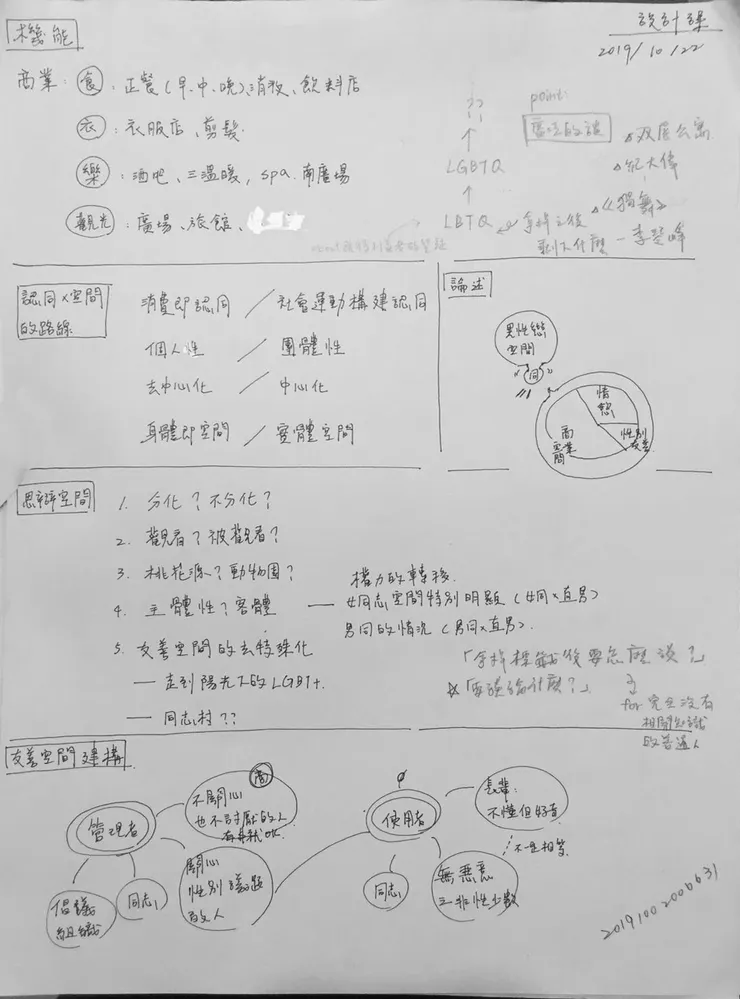 設計課
2019/10/22
機能
商業：食：正餐(早、中、晚)、消夜、飲料店
衣：衣服店、剪髮
樂：酒吧、三溫暖, spa. 南廣場
觀光：廣場、旅館、
??
↑
LGBTQ
↑
LBTQ
拿掉之後
剩下什麼
point:
應說的話
紀大偉
李屏峰
認同×空間
的路線
消費即認同／社會運動構建認同
個人性／團體性
去中心化／中心化
身體即空間／客體空間
論述
男性戀
空間
同
情慾
性別
友善
商業
空間
思辯空間
1. 分化？不分化？
2. 觀看？被觀看？
3. 桃花源？動物園？
4. 主體性？客體
權力的轉移.
女同志空間特別明顯(女同×直男)
男同的情況(男同×直男).
5. 友善空間的去特殊化
—走到陽光下的LGBT+.
—同志村??
「拿掉標籤後要怎麼談？」
☆「要談論什麼？」
for 完全沒有
相關知識
的普通人
友善空間建構
管理者
不關心
也不討厭的人
有尊重就OK.
商
關心
性別議題
的人
倡議
組織
同志
使用者
長輩:
不懂但好奇
不是相等.
同志
無惡意
之非性少數
20191002006631